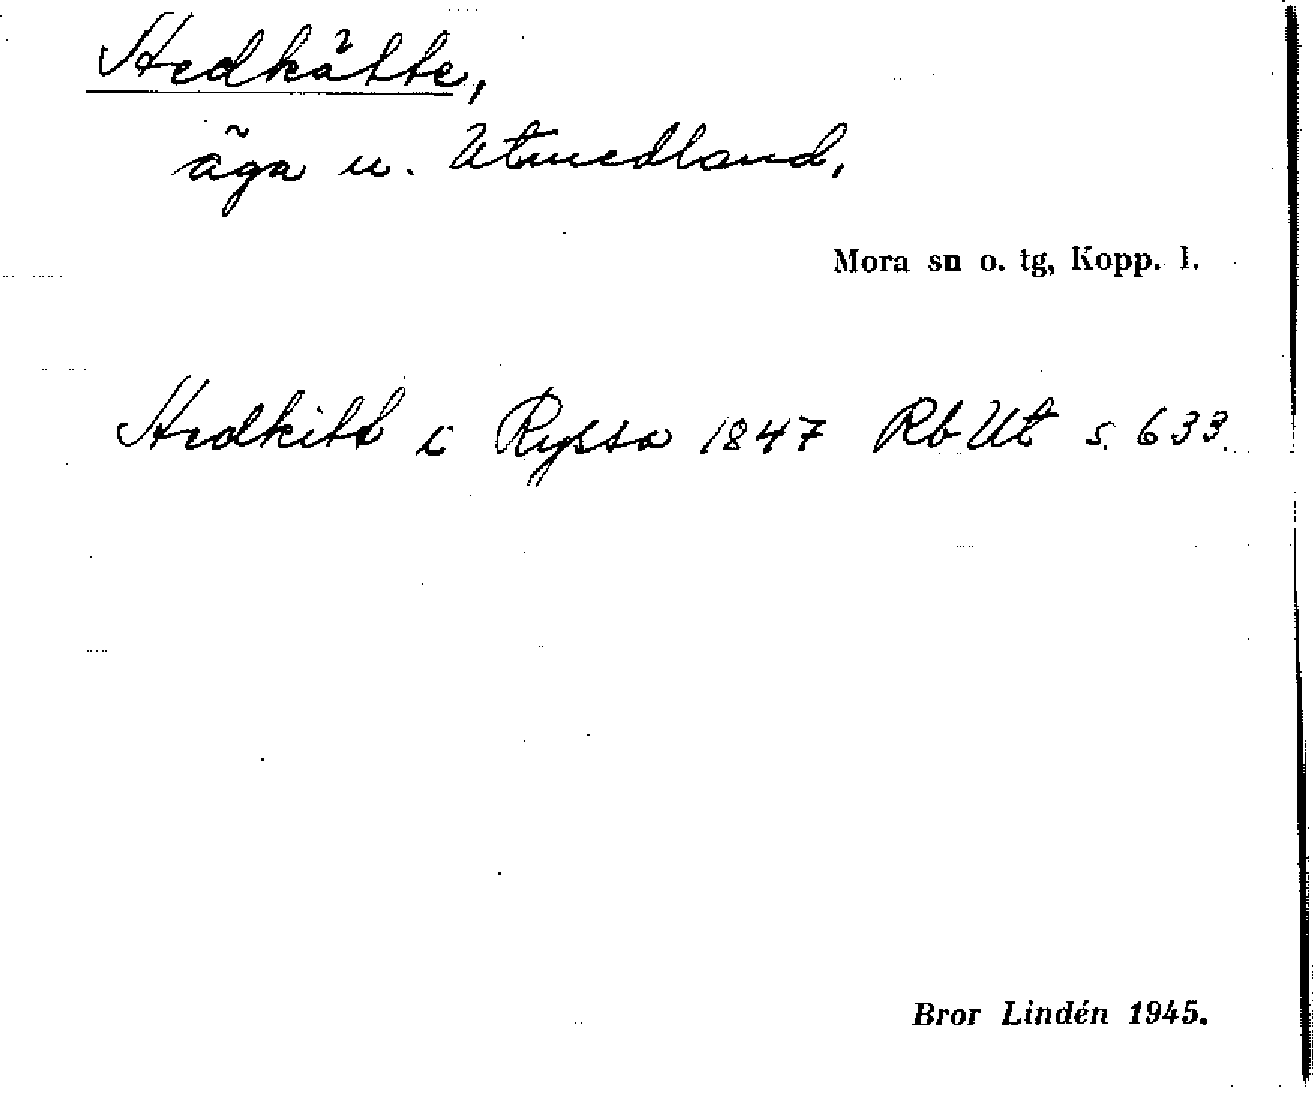 Hedkätte,
äga u. Utmedland,
Mora sn o. tg, Kopp. l.
Hedkitt i Ryssa 1847 Rb Ut s. 633.
Bror Lindén 1945.